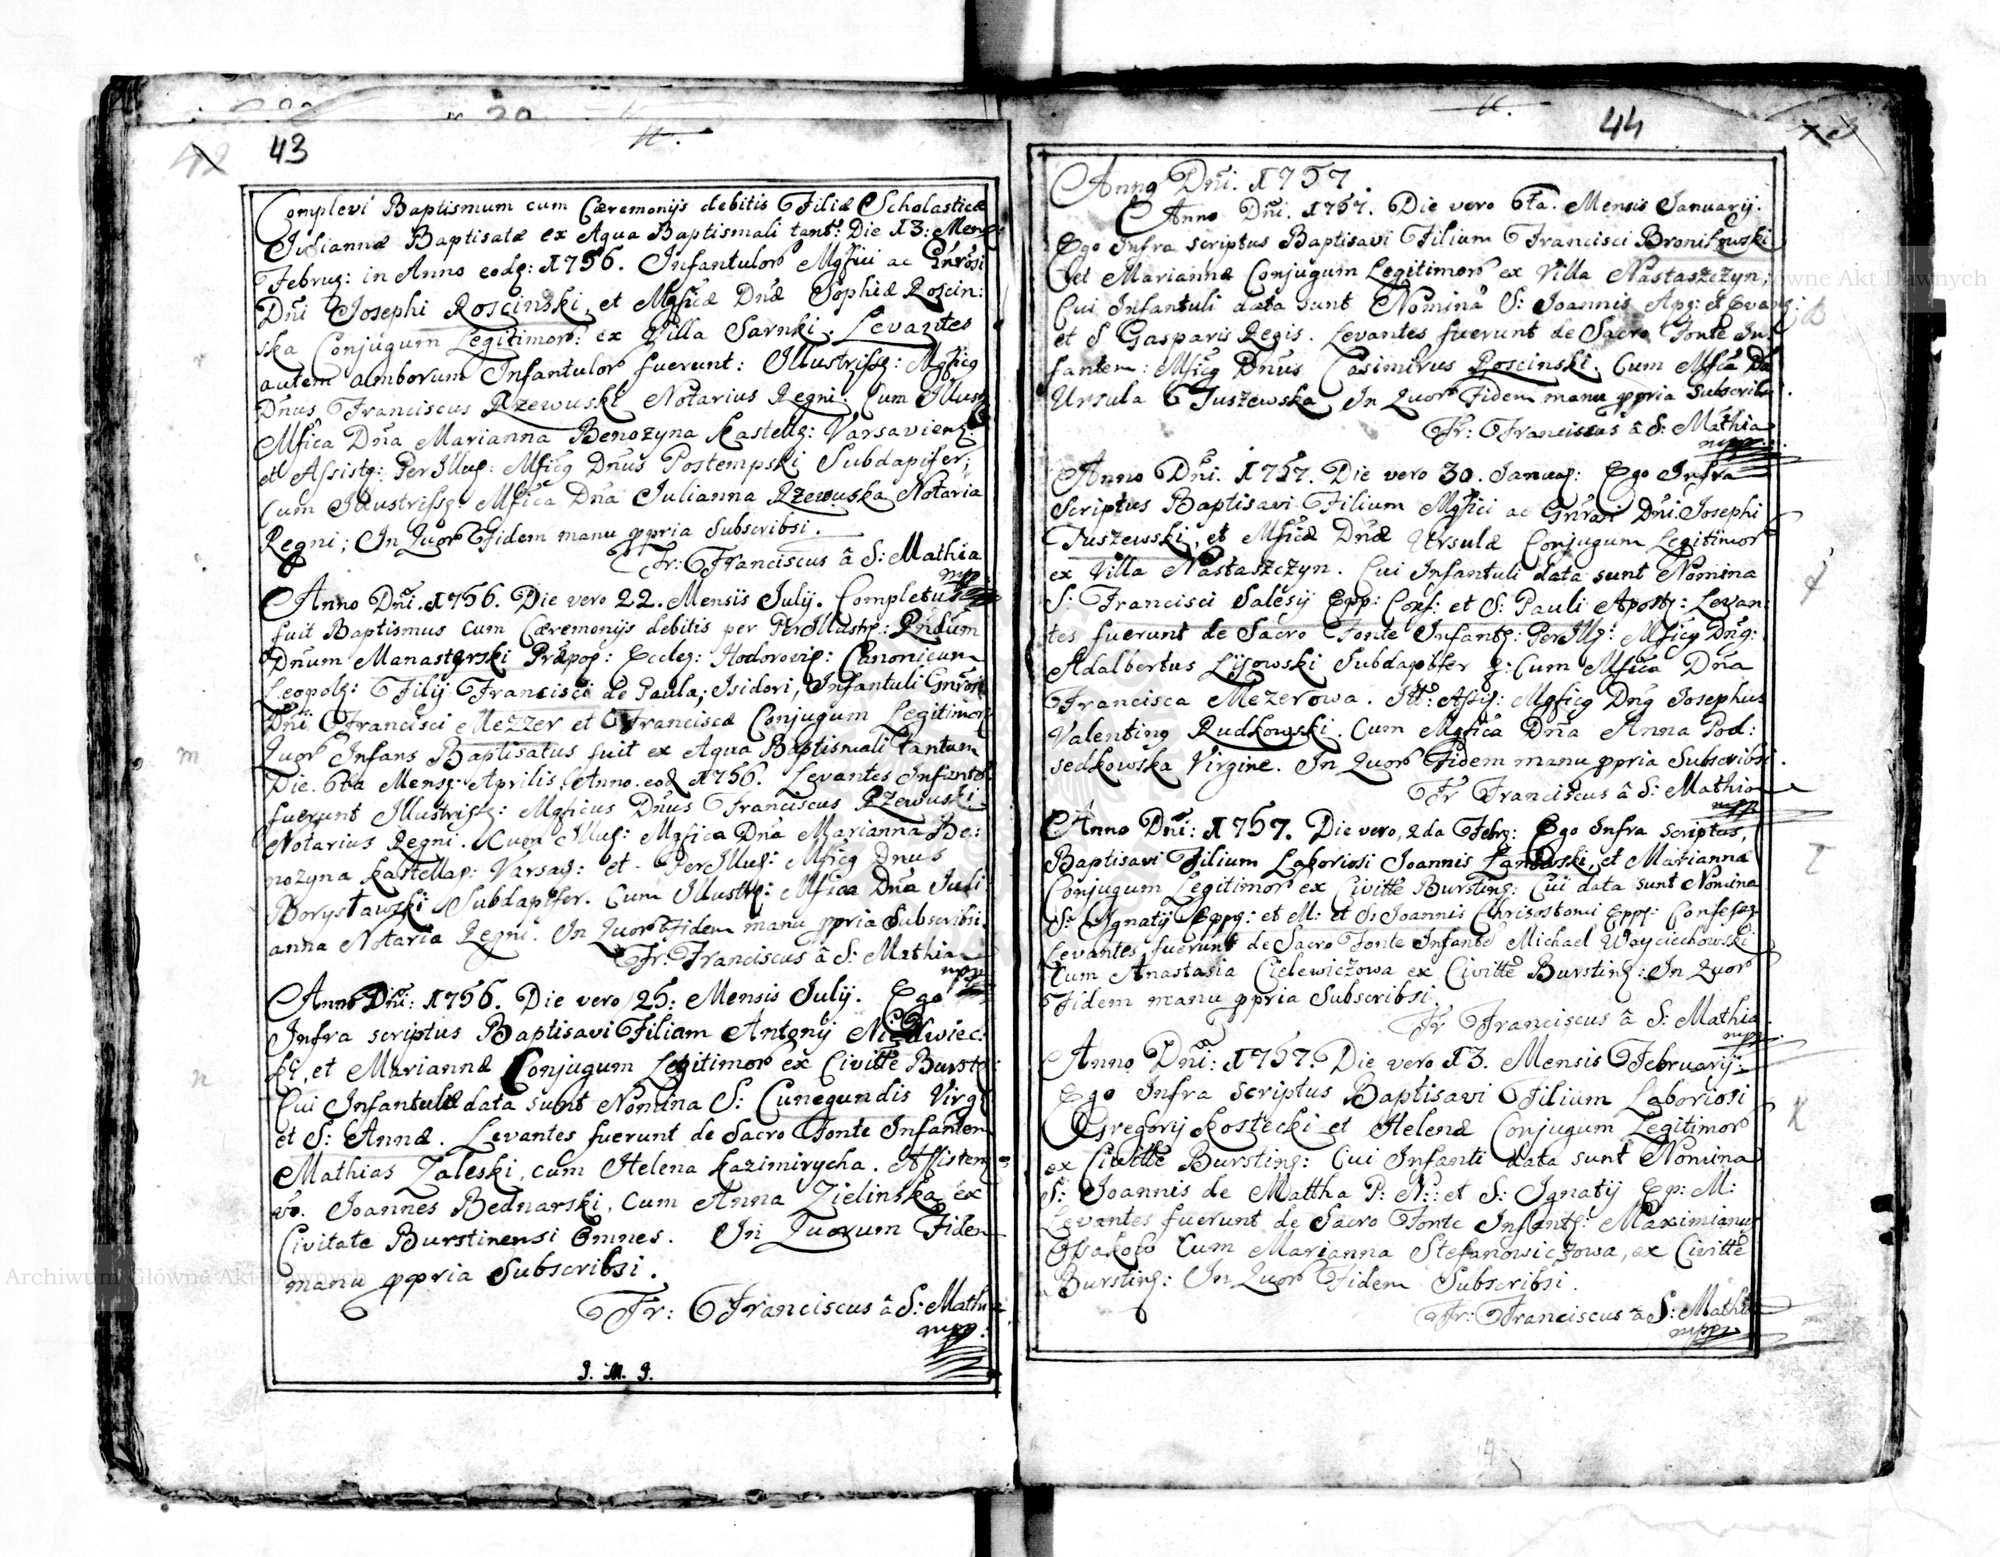 43
Complevi Baptismum cum Cæremonijs debitis Filiæ Scholasticæ
Juliannæ Baptisatæ ex Aqua Baptismali tant: Die 13: Mens:
Februg: in Anno eodg: 1756. Infantulor Mgfici ac Gnrosi
Dñi Josephi Roscinski, et Mgficæ Dñæ Sophiæ Roscin:
ska Conjugum Legitimor: ex Villa Sarnki. Levantes
autem amborum Infantulor fuerunt: Illustrissg: Mgficg
Dñus Franciscus Rzewuski Notarius Regni. Cum Illust
Mfica Dña Marianna Benozyna Kastellg: Varsavieng
et Assistg: Per Illug: Mficg Dñus Postempski Subdapifer;
Cum Illustrissg: Mfica Dña Julianna Rzewuska Notaria
Regni; In Quor Fidem manu ppria Subscribsi.
Fr: Franciscus â S: Mathia
mpp.
Anno Dñi. 1756. Die vero 22. Mensis Julij. Completus
fuit Baptismus cum Cæremonijs debitis per PerIllustrg: Rndum
Dñum Manasterski Præpog: Eccleg: Hodorovig: Canonicum
Leopolg: Filij Francisci de Paula; Isidori, Infantuli Gnrosi
Dñi Francisci Mezzer et Franciscæ Conjugum Legitimor
Quor Infans Baptisatus fuit ex Aqua Baptismali tantum
Die. 6ta Mensg: Aprilis Anno. eod 1756. Levantes Infante
fuerunt Illustrissg: Mgficus Dñus Franciscus Rzewuski
Notarius Regni. Cum Illug: Mgfica Dña Marianna Be:
nozyna Kastellag: Varsag: et. PerIllug: Mficg Dnus
Borysławski Subdapifer. Cum Illustrg: Mfica Dña Juli
anna Notaria Regni. In Quor Fidem manu ppria Subscribsi.
Fr: Franciscus â S: Mathia
mpp
Anno Dñi: 1756. Die vero 25: Mensis Julij. Ego
Infra scriptus Baptisavi Filiam Antonij Niedwiec:
ki, et Mariannæ Conjugum Legitimor ex Civitte Burstg:
Cui Infantulæ data sunt Nomina S: Cunegundis Virg
et S: Annæ. Levantes fuerunt de Sacro Fonte Infantem
Mathias Zaleski, cum Helena Kazimirycha. Assisten
vo. Joannes Bednarski, cum Anna Zielinska ex
Civitate Burstinensi Omnes. In Quorum Fidem
manu ppria Subscribsi.
Fr: Franciscus â S: Mathia
mpp:
J. M. J.
m
n
44
Anno Dñi. 1757.
Anno Dñi. 1757. Die vero 6ta. Mensis Januarij.
Ego Infra scriptus Baptisavi Filium Francisci Bronikowski
et Mariannæ Conjugum Legitimor ex Villa Nastaszczyn;
Cui Infantuli data sunt Nomina S: Joannis Apg: et Evang:
et S Gasparis Regis. Levantes fuerunt de Sacro Fonte In:
fantem: Mficg Dnus Casimirus Roscinski. Cum Mfica Dña
Ursula Tuszewska In Quor Fidem manu ppria Subscribsi.
Fr: Franciscus â S: Mathia
mpp.
Anno Dñi. 1757. Die vero 30. Januag: Ego Infra
Scriptus Baptisavi Filium Mgfici ac Gnrosi Dñi Josephi
Tuszewski, et Mficæ Dñæ Ursulæ Conjugum Legitimor
ex Villa Nastaszczyn. Cui Infantuli data sunt Nomina
S: Francisci Salesij Epp: Conf: et S: Pauli Apostg: Levan:
tes fuerunt de Sacro Fonte Infantg: PerIllg: Mficg Dng:
Adalbertus Lisowski Subdapifer g: Cum Mfica Dña
Francisca Mezerowa. Itt: Assig: Mgficg Dng Josephus
Valenting Rudkowski. Cum Mgfica Dña Anna Pod:
sedkowska Virgine. In Quor Fidem manu ppria Subscribsi.
Fr Franciscus â S: Mathia
mpp
Anno Dñi: 1757. Die vero, 2da Febrg: Ego Infra scriptus,
Baptisavi Filium Laboriosi Joannis et Marianna
Conjugum Legitimor ex Civitte Bursting: Cui data sunt Nomina
S: Ignatij Eppg: et M: et S: Joannis Chrisostomi Eppg: Confesg
Levantes fuerunt de Sacro Fonte Infante Michael Woyciechowski
Cum Anastasia Cielewiczowa ex Civitte Bursting: In Quor
Fidem manu ppria Subscribsi.
Fr Franciscus â S: Mathia.
mpp.
Anno Dñi: 1757. Die vero 13. Mensis Februarij:
Ego Infra Scriptus Baptisavi Filium Laboriosi
Gregorij Kostecki et Helenæ Conjugum Legitimor
ex Civitte Bursting: Cui Infanti data sunt Nomina
S: Joannis de Mattha P: N:: et S: Ignatij Ep: M:
Levantes fuerunt de Sacro Fonte Infantg: Maximianus
Cum Marianna Stefanowiczowa, ex Civitte
Bursting: In Quor Fidem Subscribsi.
Fr: Franciscus â S: Mathia
mpp.
K
Archiwum Główne Akt Dawnych